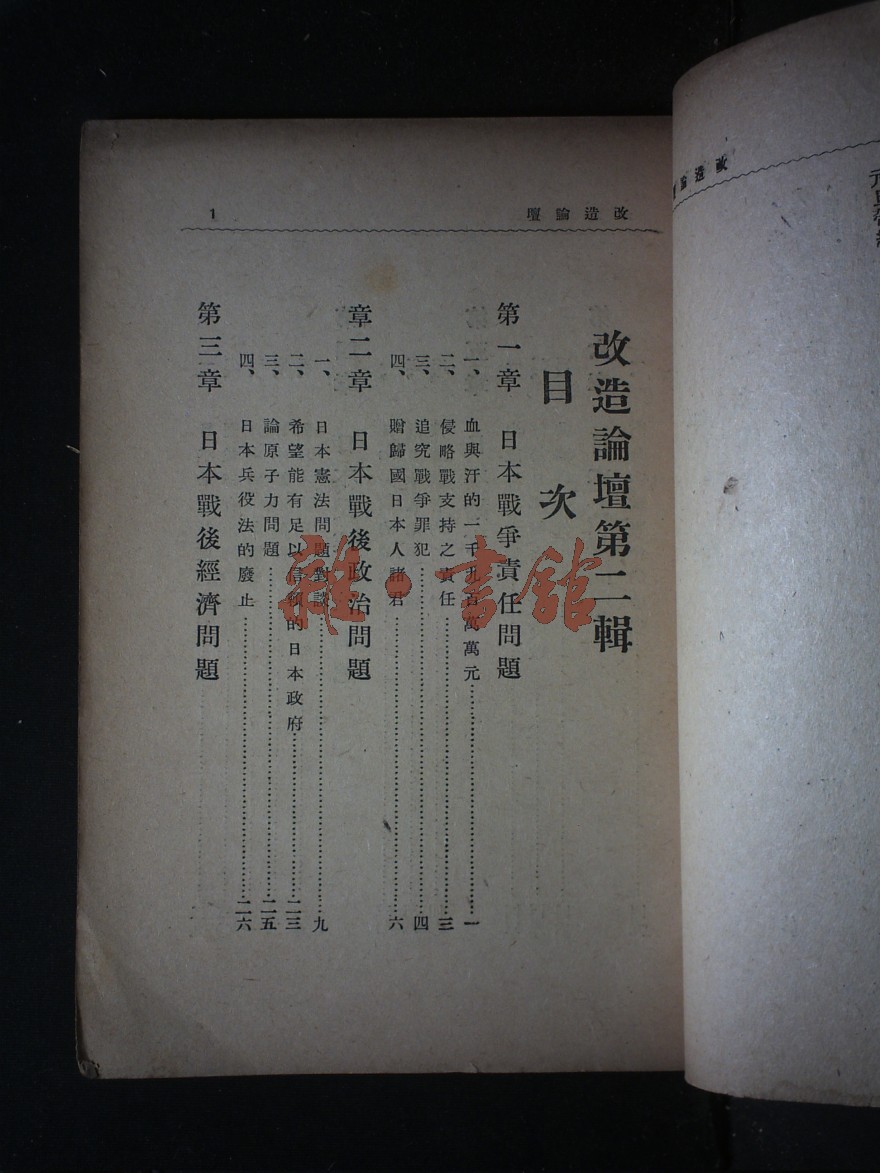 改造論壇
1
改造論壇第二輯
目次
第一章 日本戰爭責任問題
一、血與汗的一千九百萬萬元……一
二、侵略戰支持之責任……三
三、追究戰爭罪犯……四
四、贈歸國日本人諸君……六
章二章 日本戰後政治問題
一、日本憲法問題對談……九
二、希望能有足以信賴的日本政府……二三
三、論原子力問題……二五
四、日本兵役法的廢止……二六
第三章 日本戰後經濟問題
改造論
雜·書館